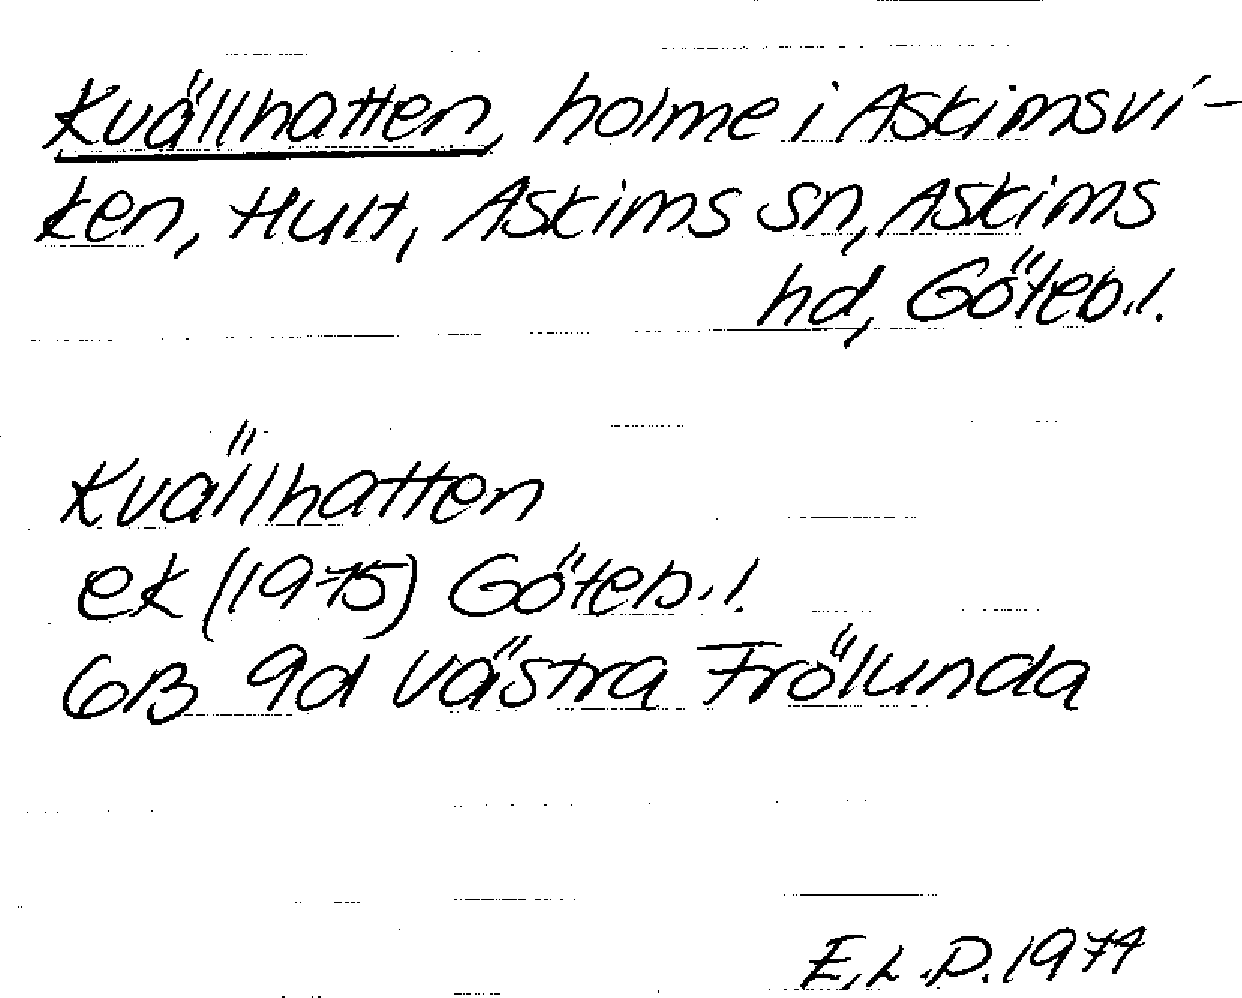 Kvällhatten, holme i Askimsvi-
ken, Hult, Askims sn, Askims
hd, Göteb.l.
Kvällhatten
ek (1975) Göteb.l.
6B 9d Västra Frölunda
E.L.D. 1979